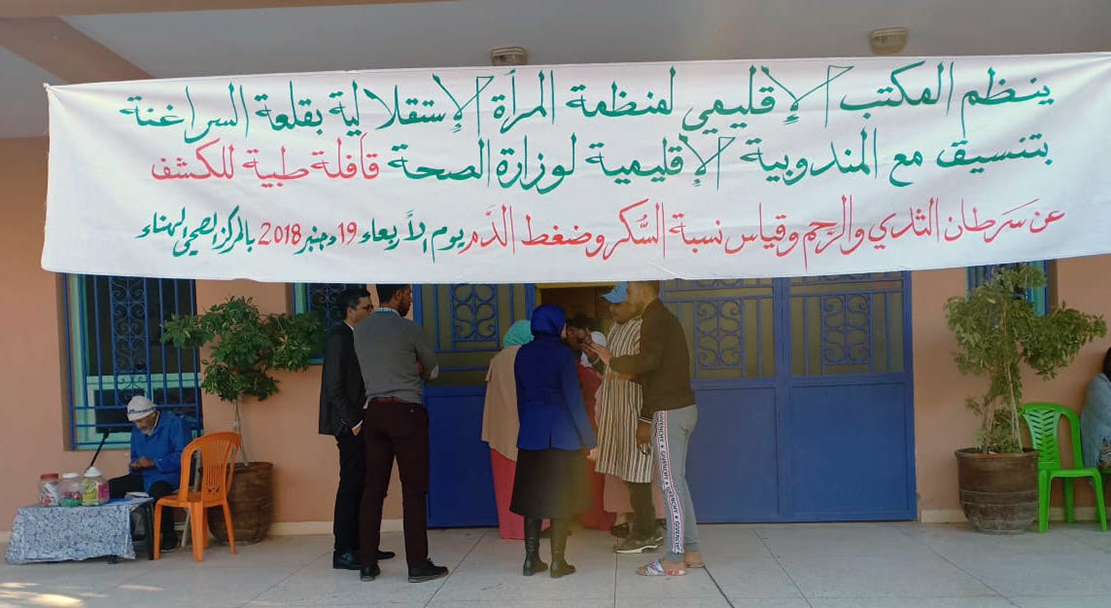 ينظم المكتب الإقليمي لمنظمة المرأة الإستقلالية بقلعة السراغنة
بتنسيق مع المندوبية الإقليمية لوزارة الصحة قافلة طبية للكشف
عن سَرطان الثدي والرَّحم وقياس نسبة السُّكر وضغط الدَّم يوم الأربعاء 19 دجنبر 2018 بالمركز الصحي الهناء
GIVENCHY